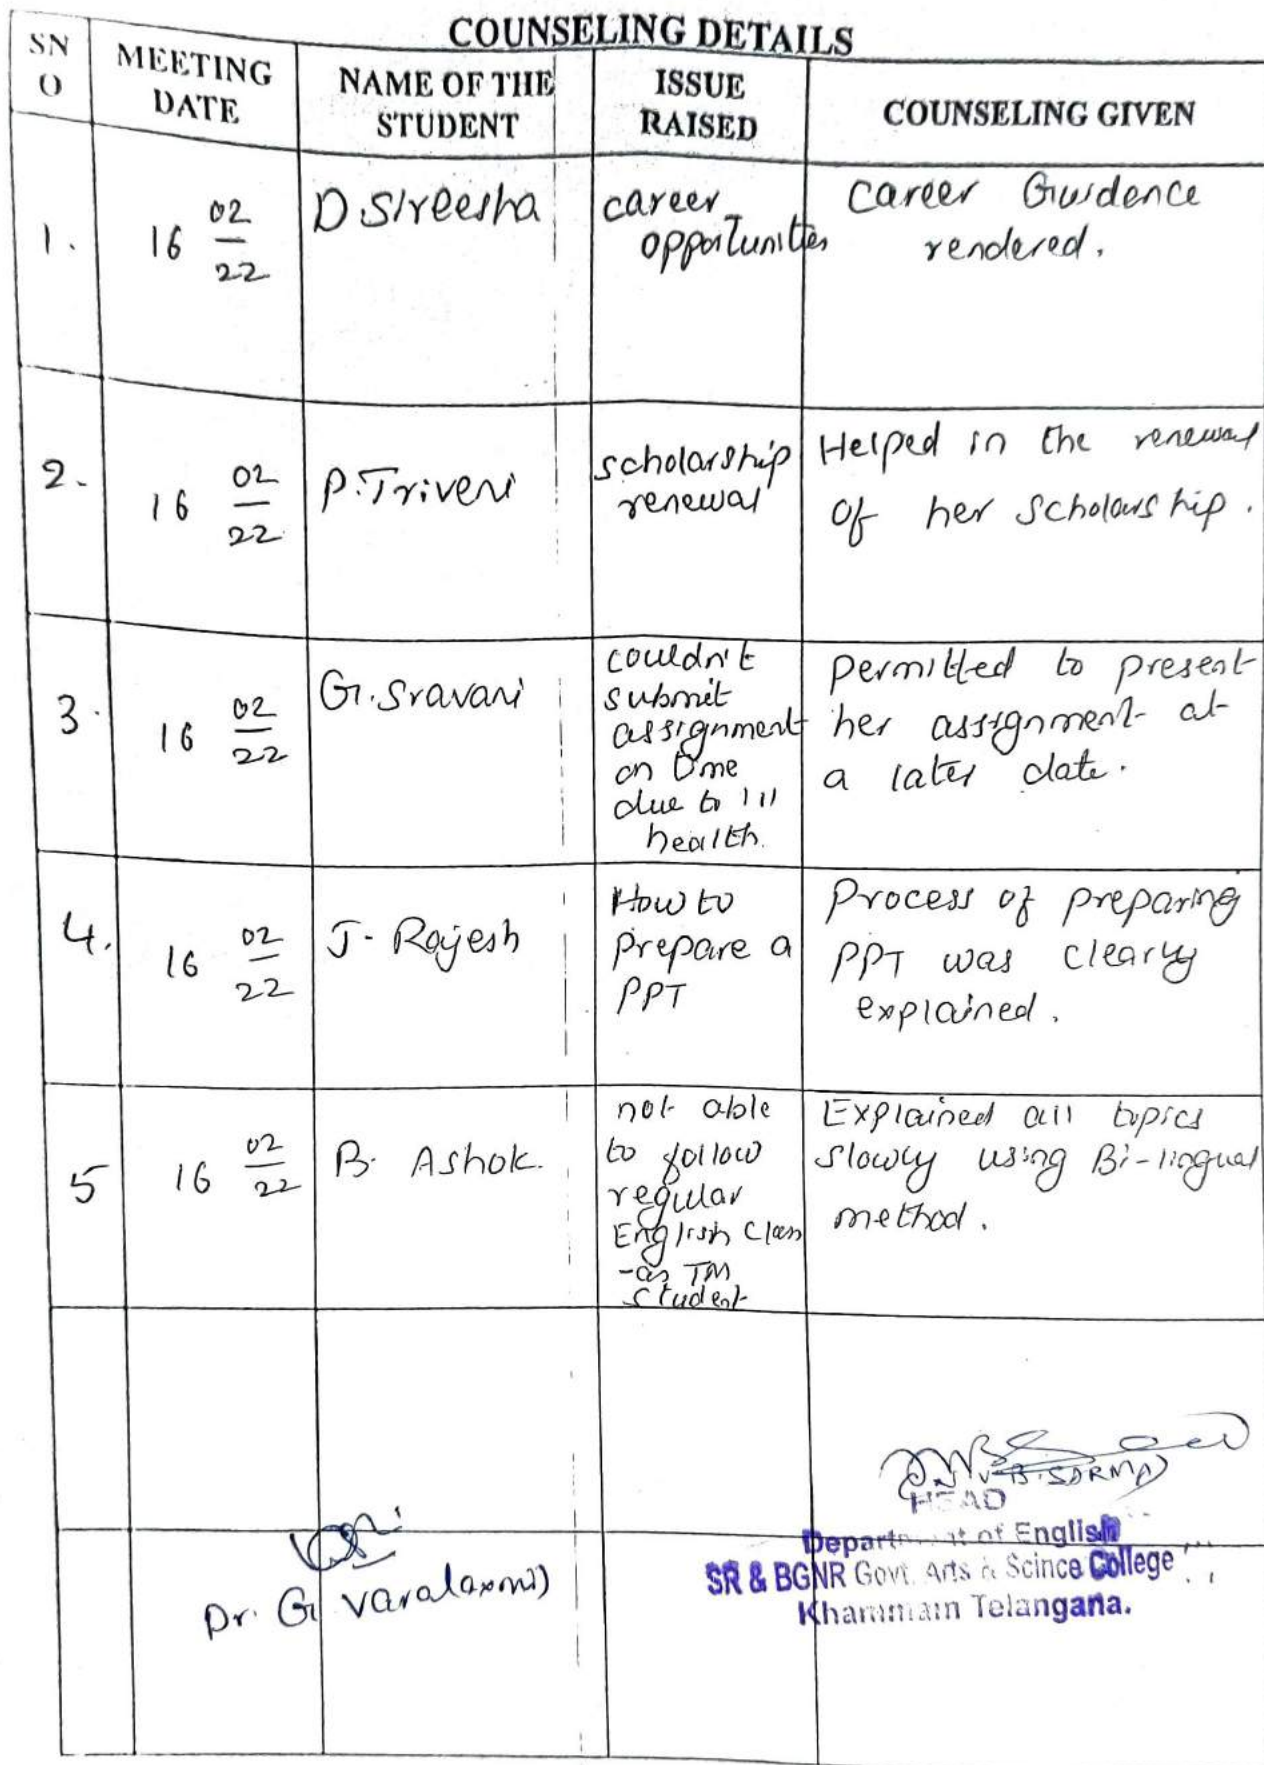 COUNSELING DETAILS
SN
O
MEETING
DATE
NAME OF THE
STUDENT
ISSUE
RAISED
COUNSELING GIVEN
1.
16 02/22
D. Sireesha
career
opportunities
Career Guidence
rendered.
2.
16 02/22
P. Triveni
scholarship
renewal
Helped in the renewal
of her scholarship.
3.
16 02/22
G. Sravani
couldn't
submit
assignment
on time
due to ill
health.
permitted to present
her assignment at
a later date.
4.
16 02/22
J. Rajesh
How to
prepare a
PPT
Process of preparing
PPT was clearly
explained.
5
16 02/22
B. Ashok.
not able
to follow
regular
English class
-as TM
student
Explained all topics
slowly using Bi-lingual
method.
Dr. G. Varalaxmi)
B. SARMA)
HEAD
Department of English
SR & BGNR Govt. Arts & Scince College
Khammam Telangana.